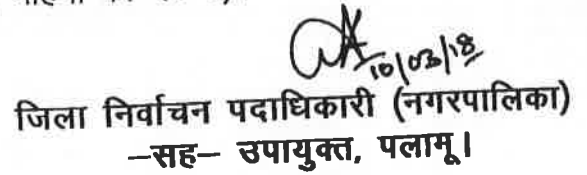 10/03/18
जिला निर्वाचन पदाधिकारी (नगरपालिका)
–सह– उपायुक्त, पलामू।